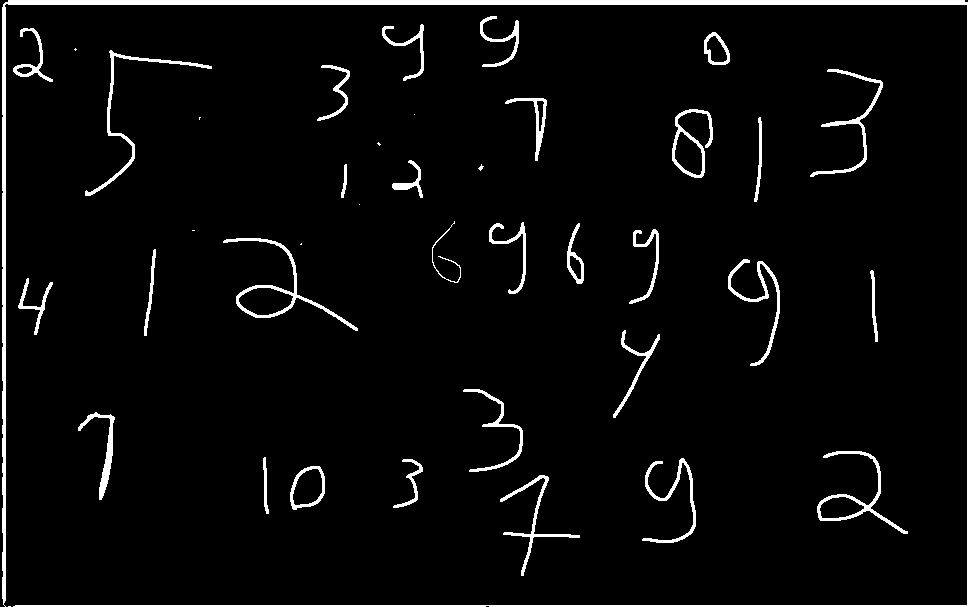 2 5 3 9 9 7 0 8 1 3
1 2
4 1 2 6 9 6 9 9 1
4
7 10 3 3 7 9 2